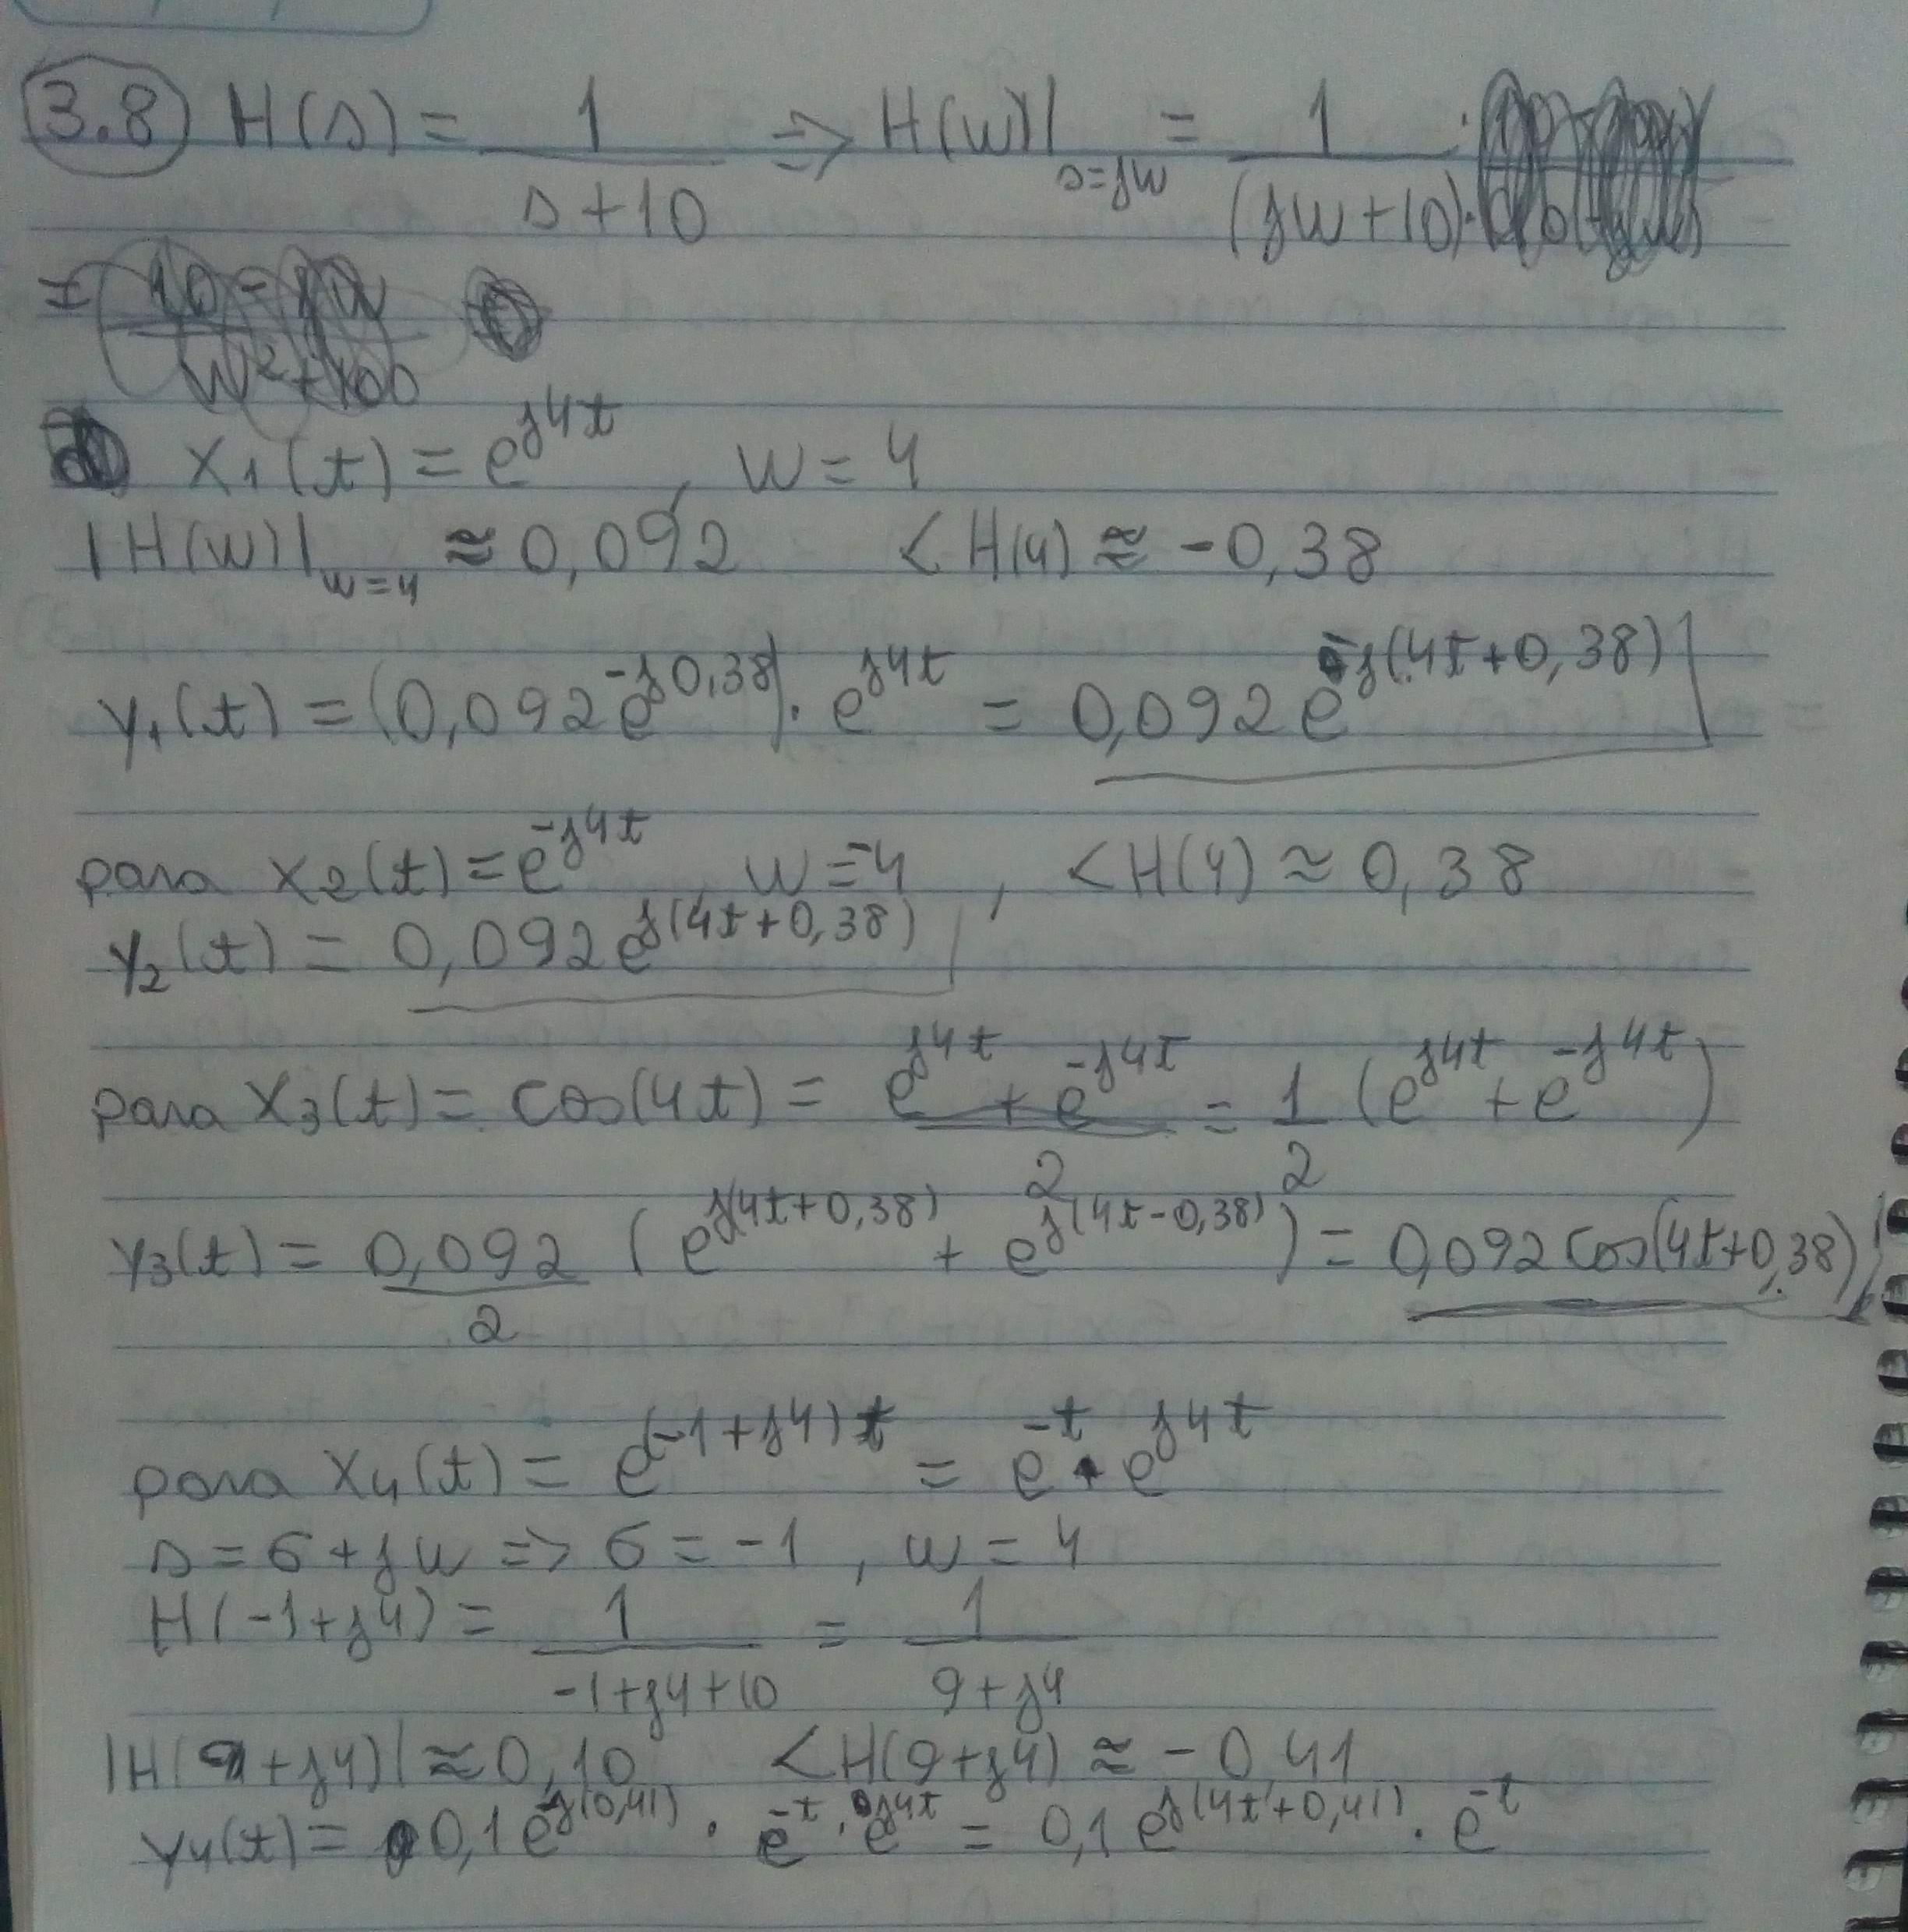 3.8 H(s) = 1/(s+10) => H(w)|s=jw = 1/(jw+10).
x1(t) = e^{j4t}, w = 4
|H(w)|w=4 ≈ 0,092 <H(4) ≈ -0,38
y1(t) = (0,092 e^{-j0,38}) . e^{j4t} = 0,092 e^{-j(4t+0,38)}
para x2(t) = e^{-j4t}, w = -4, <H(4) ≈ 0,38
y2(t) = 0,092 e^{j(4t+0,38)}
para x3(t) = cos(4t) = (e^{j4t} + e^{-j4t})/2 = 1/2 (e^{j4t} + e^{-j4t})
y3(t) = 0,092/2 (e^{j(4t+0,38)} + e^{j(4t-0,38)}) = 0,092 cos(4t+0,38)
para x4(t) = e^{(-1+j4)t} = e^{-t} . e^{j4t}
s = σ + jw => σ = -1, w = 4
H(-1+j4) = 1/(-1+j4+10) = 1/(9+j4)
|H(9+j4)| ≈ 0,10 <H(9+j4) ≈ -0,41
y4(t) = 0,1 e^{-j(0,41)} . e^{-t} . e^{j4t} = 0,1 e^{j(4t+0,41)} . e^{-t}